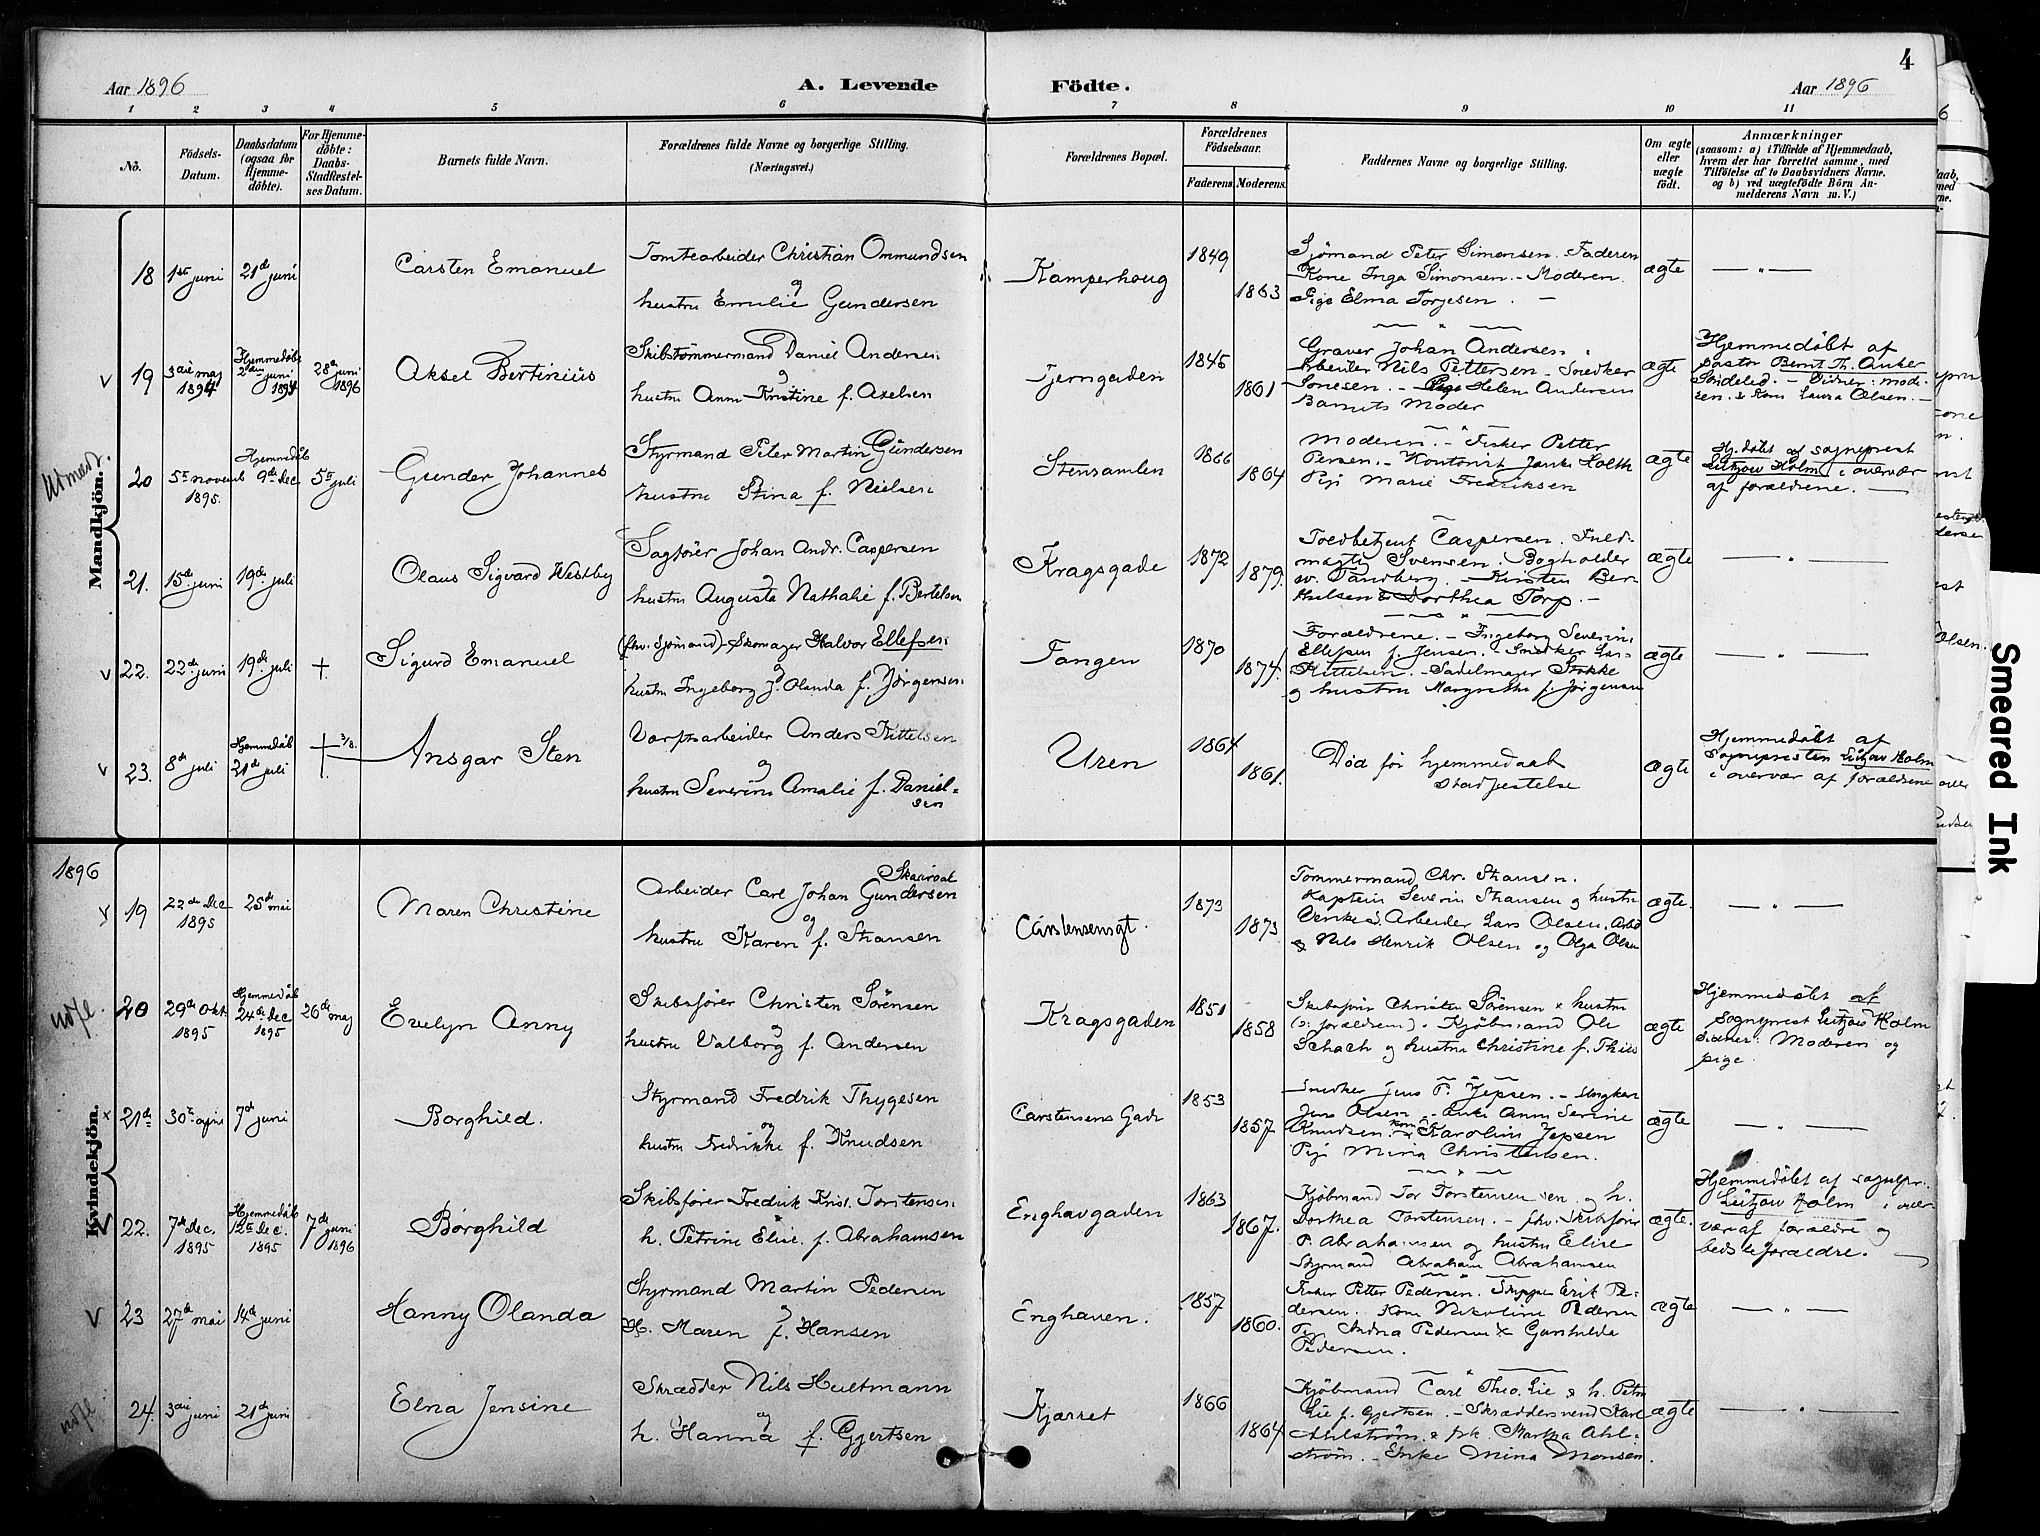 4
Aar 1896
A. Levende
Födte.
Aar 1896
1 2 3 4 5 6 7 8 9 10 11
No.
Födsels-
Datum.
Daabsdatum
(ogsaa for
Hjemme-
döbte).
For Hjemme-
döbte:
Daabs-
Stadfæstel-
ses Datum.
Barnets fulde Navn.
Forældrenes fulde Navne og borgerlige Stilling.
(Næringsvei.)
Forældrenes Bopæl.
Forældrenes
Födselsaar.
Faderens
Moderens.
Faddernes Navne og borgerlige Stilling.
Om ægte
eller
uægte
født.
Anmærkninger
(saasom: a) i Tilfælde af Hjemmedaab,
hvem der har forrettet samme, med
Tilföielse af to Daabsvidners Navne.
og b) ved uægtefödte Börn An-
melderens Navn m. V.)
Mandkjön.
18
1ste juni
21de juni
Carsten Emanuel
Tomtearbeider Christian Ommundsen
og
hustru Emilie Gundersen
Kamperhoug
1849
1863
Sjømand Peter Simonsen. Faderen
Kone Inga Simonsen. - Moderen.
Pige Elma Torjesen. -
ægte
— " —
v 19
3die maj
1894
Hjemmedøbt
2den juni
1894
28de juni
1896
Aksel Bertinius
Skibstømmermand Daniel Andersen
og
hustru Ann Kristine f. Axelsen
Tjerngaden
1845
1861
Graver Johan Andersen.
Arbeider Nils Pettersen - Snedker
Pige Helene Andersen
Barnets Moder
ægte
Hjemmedøbt af
pastor Bernt Th. Anker
Søndeled. - Vidner: mode-
ren & Kone Laura Olsen. -
20
5te novemb
1895.
Hjemmedøb
9de dec
5te juli
Gunder Johannes
Styrmand Peter Martin Gundersen
hustru Stina f. Nielsen
Stensamlen
1866
1864
Moderen. - Fisker Petter
Persen. - Kontorist Jank Holth
Pige Marie Fredriksen
ægte
Hj.døbt af sogneprest
Lützow Holm i overvær
af forældrene. —
21.
15de juni
19de juli
Olaus Sigvard Westby
Sagfører Johan Andr. Caspersen
og
hustru Augusta Nathalie f. Bertelsen
Kragsgade
1872
1879.
Toldbetjent Caspersen. Fuld-
mægtig Svensen. Bogholder
w. Tandberg. - Kirsten Ber-
thelsen & Dorthea Torp. -
ægte
— " —
v 22.
22de juni
19de juli
+
Sigurd Emanuel
(fhv. sjømand) - Skomager Halvor Ellefsen
og
hustru Ingeborg J. Olanda f. Jörgensen
Tangen
1870
1874.
Forældrene. - Ingeborg Severin.
Ellefsen f. Jensen. Snedker Lars
Kittelsen. - Sadelmager Stokke
og hustru Margrethe f. Jørgensen
ægte
— " —
v 23.
8de juli
Hjemmedøb
21de juli
+ 3/8.
Ansgar Sten
Værftsarbeider Anders Kittelsen
og
hustru Severine Amalie f. Daniel-
sen
Uren
1864
1861.
Død før hjemmedaab
stadfæstelse
ægte
Hjemmedøbt af
Sognepresten Lützow Holm
i overvær af forældrene
1896
Kvindekjön.
v 19
22de Dec
1895
25de mai
Maren Christine
Skaarod
Arbeider Carl Johan Gundersen
og
hustru Karen f. Stausen
Carstensensgt.
1873
1873
Tømmermand Chr. Stausen.
Kaptein Severin Stausen og hustru
Arbeider Lars Olsen. Arbd
& Nils Henrik Olsen og Olga Olsen
ægte.
— " —
20
29de Okt
1895
Hjemmedøb
24de dec
1895
26de maj
Evelyn Anny
Skibsfører Christen Sørensen
og
hustru Valborg f. Andersen
Kragsgaden
1851
1858
Skibsfører Christen Sørensen & hustru
(o: forældrene). Kjøbmand Ole
Schach og hustru Christine f. Thiis
ægte
Hjemmedøbt af
Sogneprest Lützow Holm
Vidner: Moderen og
pige.
x 21de
30te april
7de juni
Borghild.
Styrmand Fredrik Thygesen
og
hustru Fredrikke f. Knudsen
Carstensens Gade
1853
1857.
Snedker Jens P. Jepsen. - Ungkar
Jens Olsen. - Enke Anne Serine
Knudsen. Kone Karoline Jepsen
Pige Mina Christensen.
ægte
— " —
v 22.
7de Dec.
1895
Hjemmedøb
12te Dec.
1895
7de juni
1896
Borghild
Skibsfører Fredrik Krist. Torstensen
h. Petrine Elise f. Abrahamsen
Enghavgaden
1863
1867.
Kjøbmand Tor Torstensen og h.
Dorthea Torstensen. - fhv. Skibsfører
P. Abrahamsen og hustru Elise
Styrmand Abraham Abrahamsen
ægte.
Hjemmedøbt af sognepr.
Lützow Holm i over-
vær af forældre og
bedsteforældre.
v 23
27de mai
14de juni
Hanny Olanda
Styrmand Martin Pedersen
og
H. Maren f. Hansen
Enghaven.
1857
1860.
Fisker Petter Pedersen. Skipper Erik Pe-
dersen. Kone Nikoline Pedersen
Pige Andrea Pedersen & Gunhilda
Pedersen.
ægte
— " —
24.
3die juni
21de juni
Elna Jensine
Skrædder Nils Hultmann
og
h. Hanna f. Gjertsen
Kjærret
1866
1864
Kjøbmand Carl Theo. Lie & h. Petra
Lie f. Gjertsen. - Skræddersvend Karl
Ahlström. & frk. Martha Ahl-
ström. - Enke Mina Monsen.
ægte
— " —
Smeared Ink